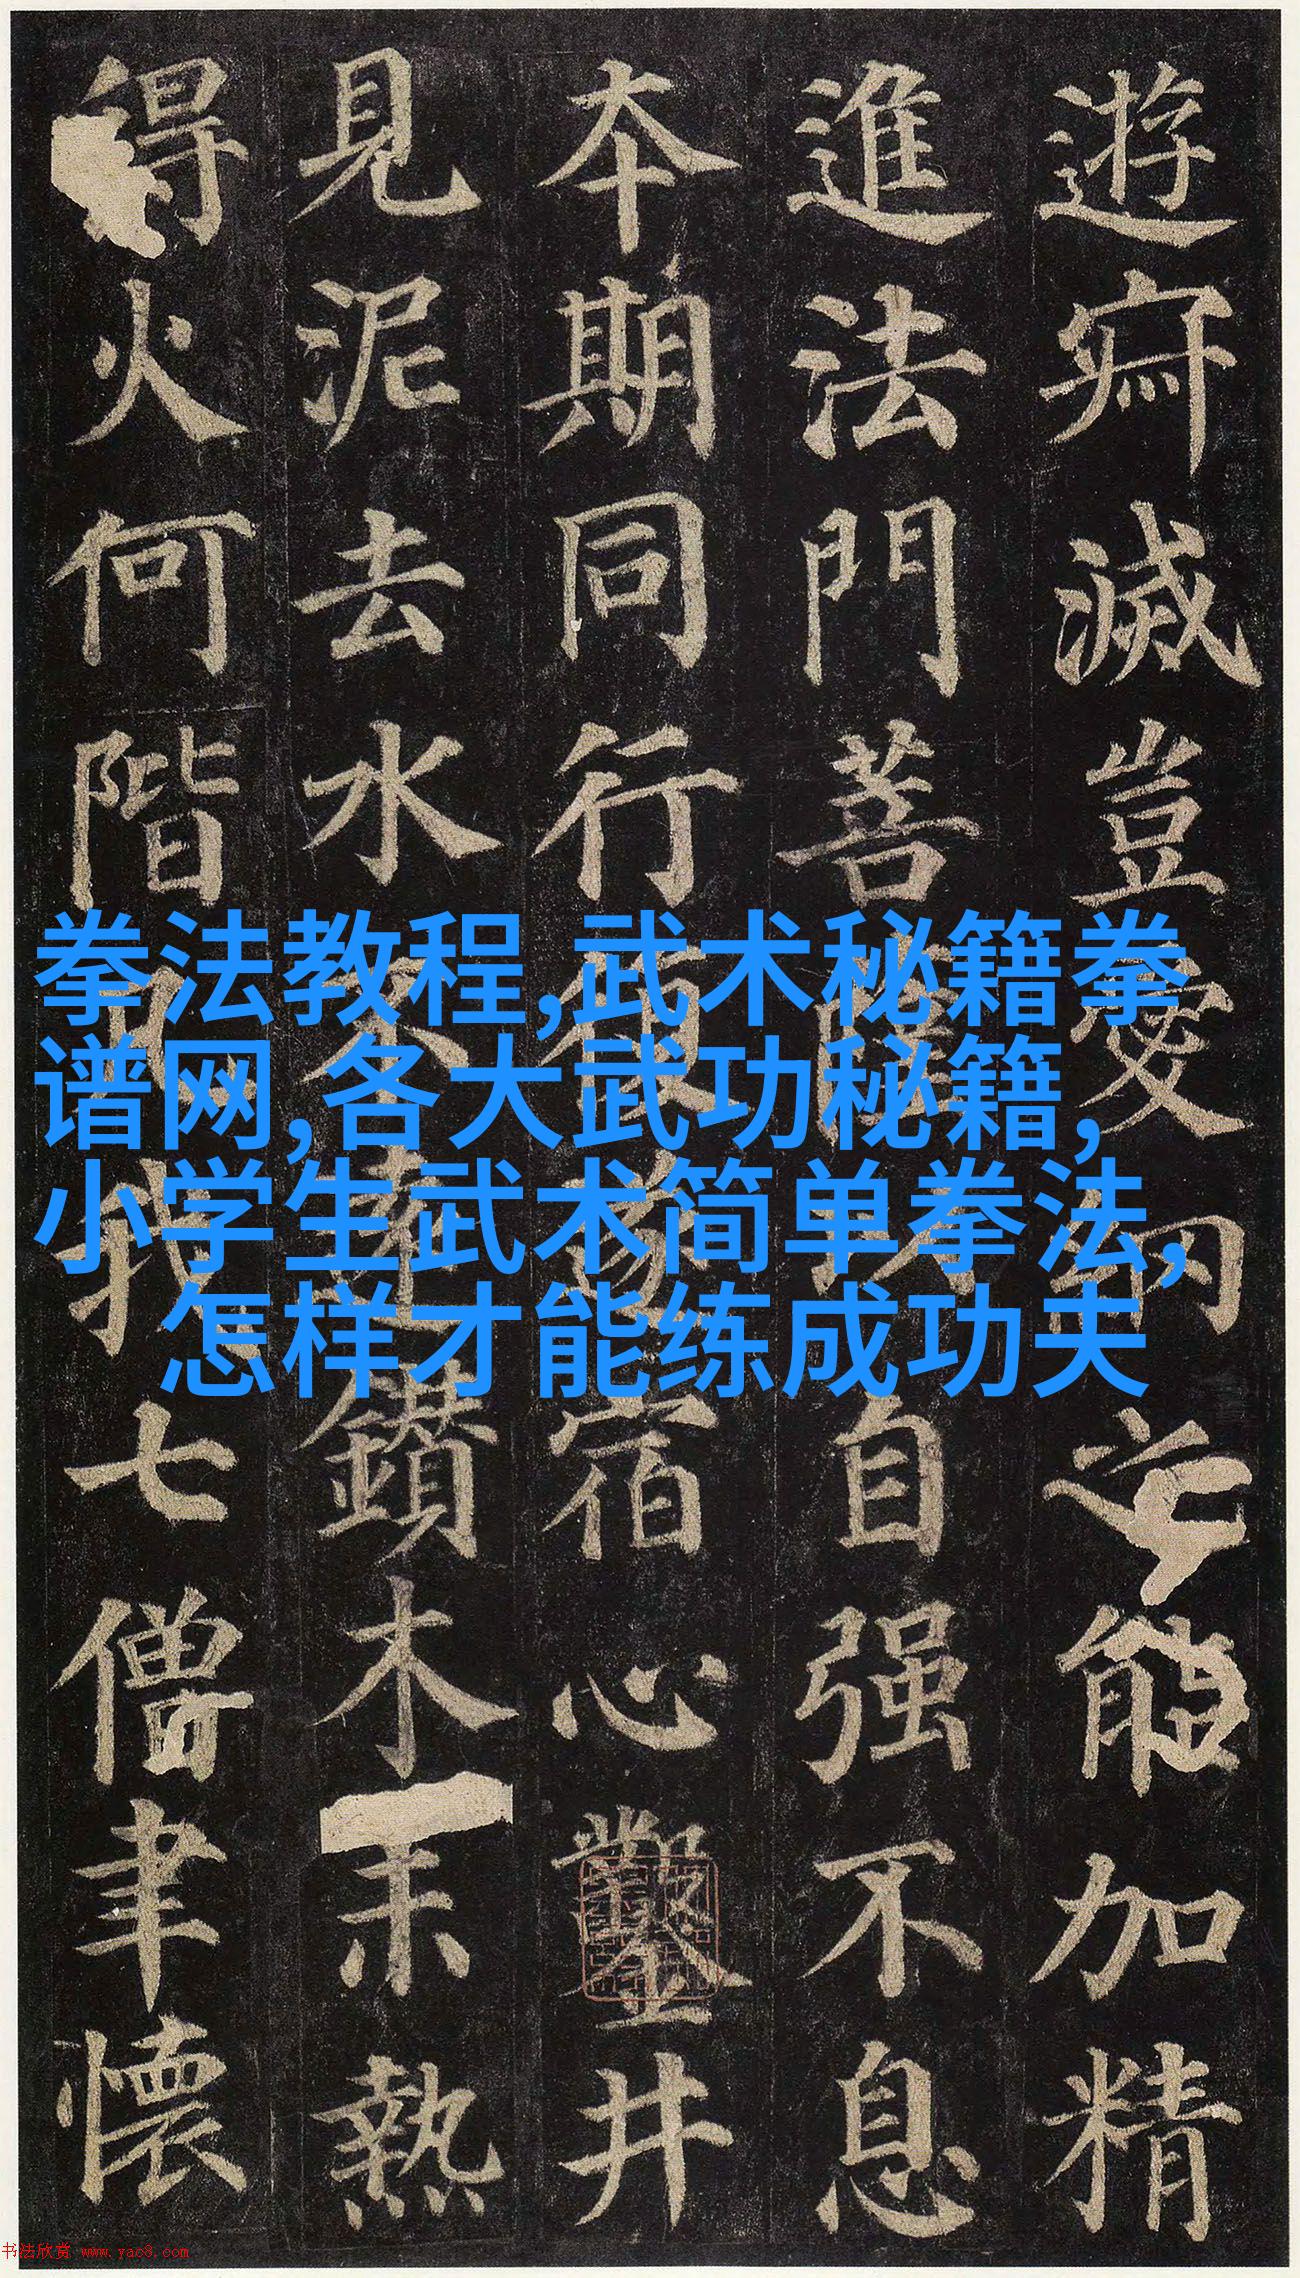 拳法教程,武术秘籍拳
谱网,各大武功秘籍,
小学生武术简单拳法,
怎样才能练成功夫
遊寂滅豈受納之能加精
進法門菩薩以自强不息
本期同行復遂宿心鑿井
見泥去水不遠鑽木未熱
得火何階凡我七僧聿懷
书法欣赏 www.yac8.com